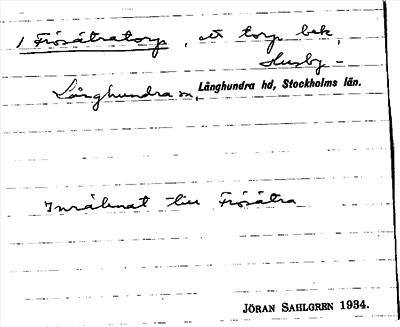 1 Frösätratorp, ett torp bek.
Husby-
Långhundra sn, Långhundra hd, Stockholms län.
Inräknat till Frösätra
JÖRAN SAHLGREN 1934.